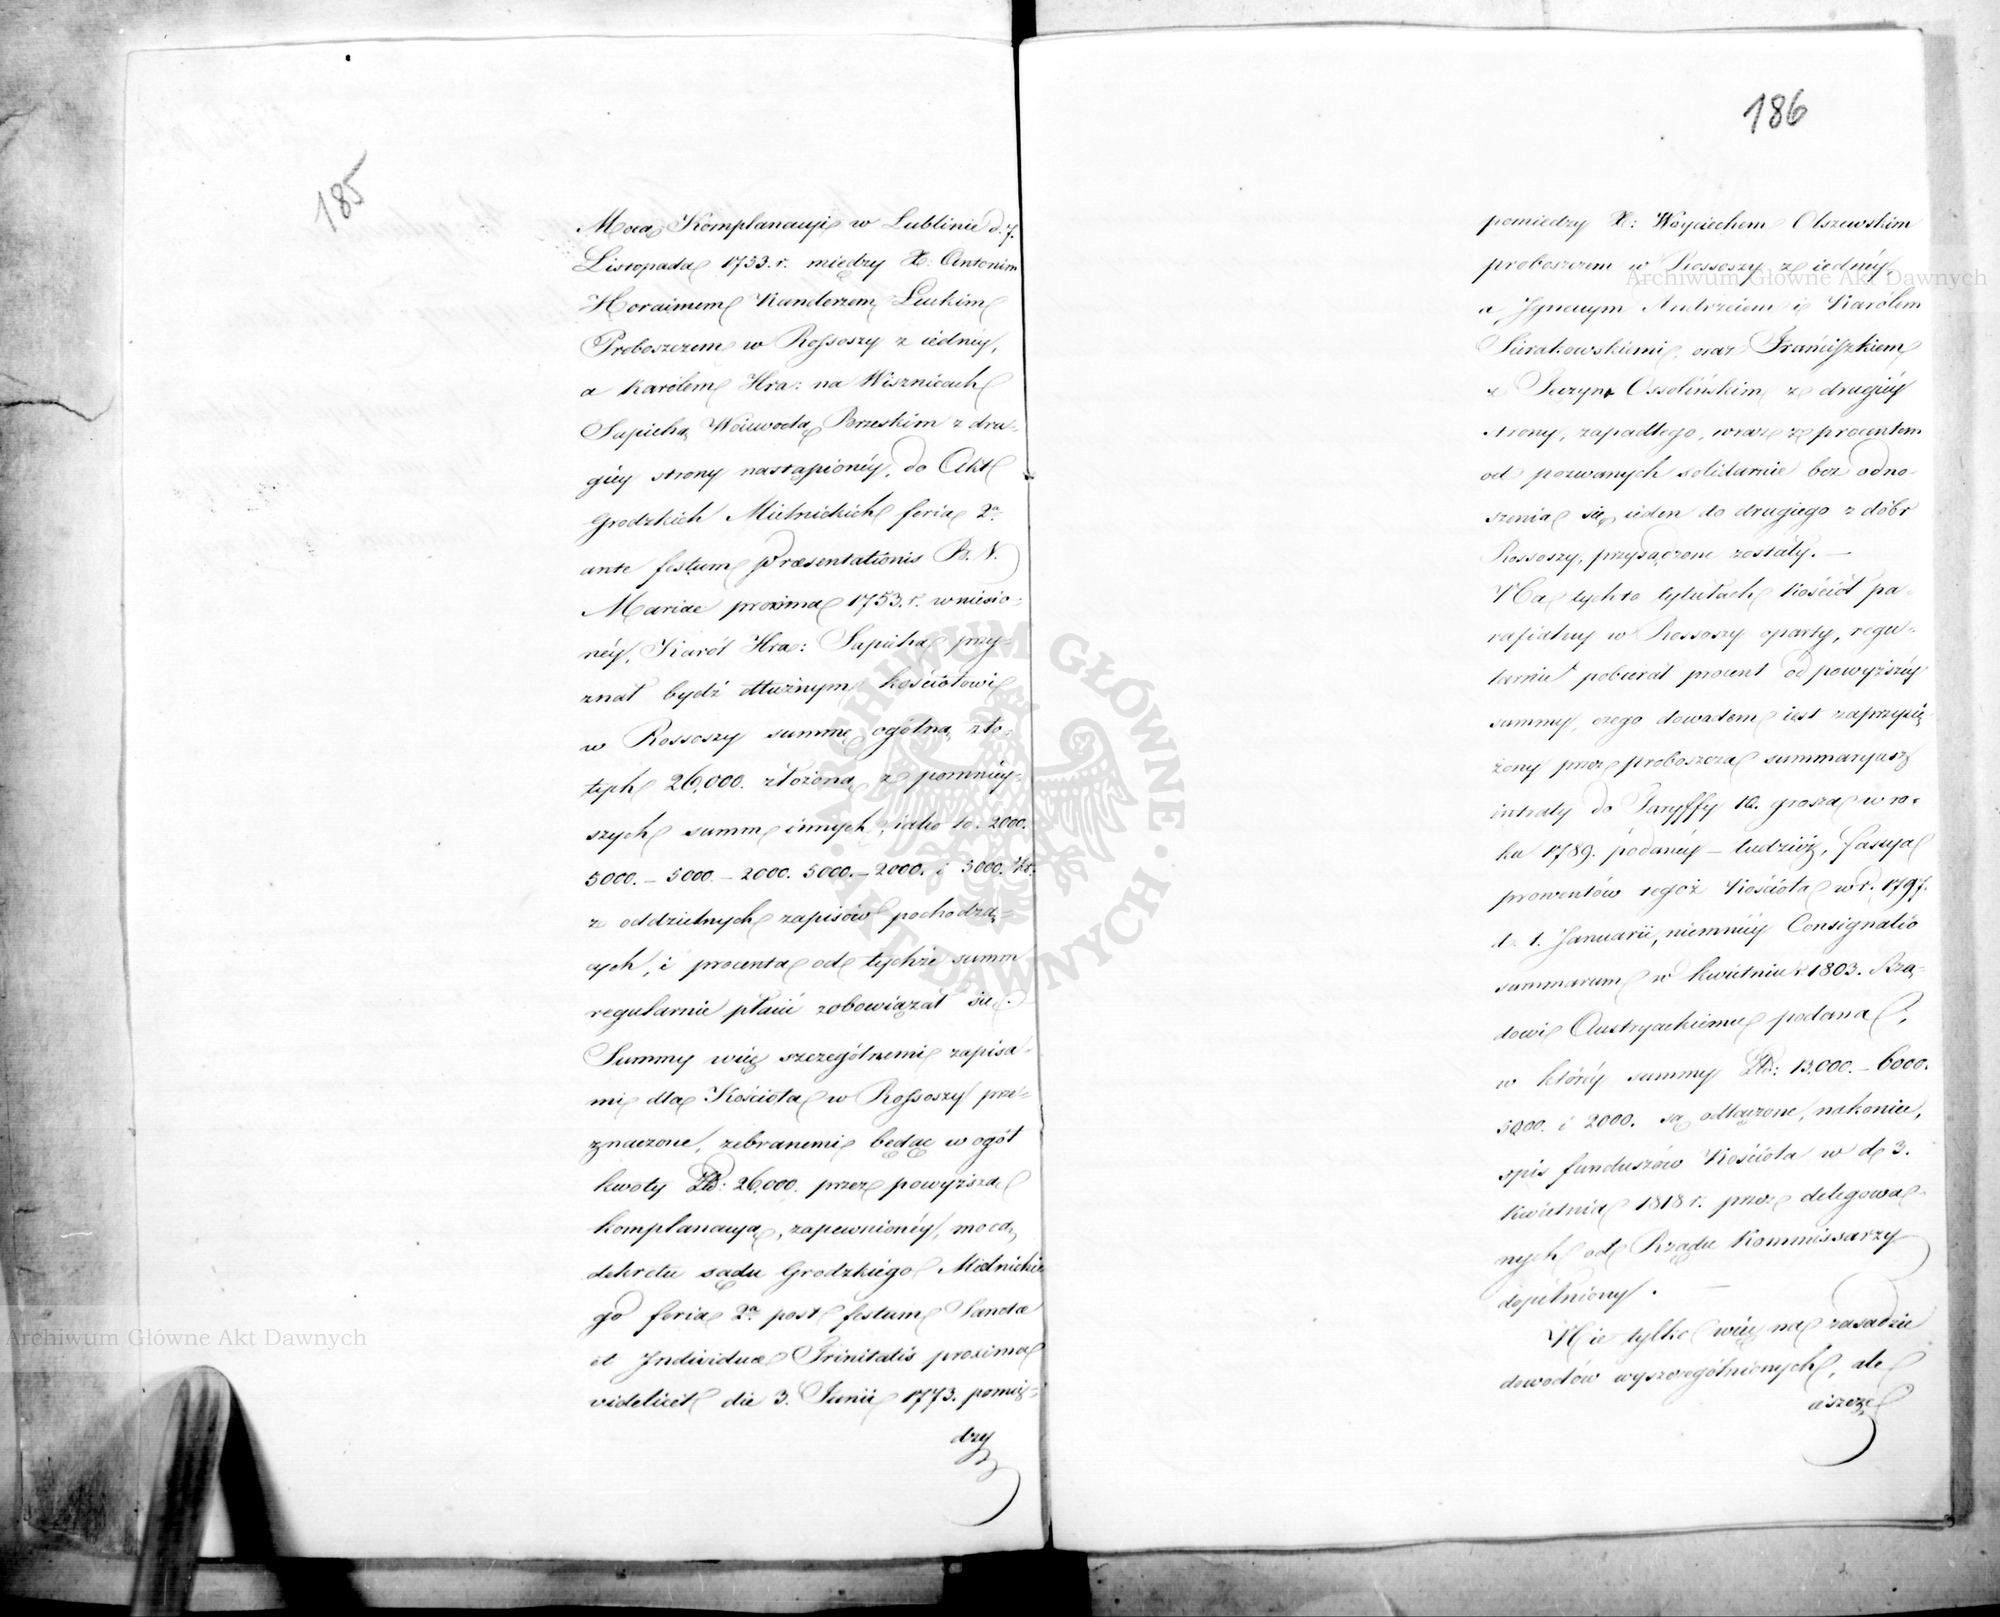 185
Mocą Komplanacyi w Lublinie d. 7.
Listopada 1753. r. między X: Antonim
Horaimem Kanderzem Łuckim
Proboszczem w Rossoszy z iednéy,
a Karolem Hra: na Wisznicach
Sapiehą Woiewodą Brzeskim z dru-
giéy strony nastąpionéy, do Akt
Grodzkich Mielnickich feria 2a
ante festum Praesentationis B. V.
Mariae proxima 1753. r. wniesio-
néy, Karól Hra: Sapieha przy-
znał bydź dłużnym kościołowi
w Rossoszy summę ogólną zło-
tych 26,000. złożoną z pomniéy-
szych summ innych, iako to. 2000.
5000. – 5000 – 2000. 5000. – 2000. i 5000. Zł.
z oddzielnych zapisów pochodzą-
cych, i procenta od tychże summ
regularnie płacić zobowiązał się.
Summy więc szczególnemi zapisa-
mi dla Kościoła w Rossoszy prze-
znaczone, zebranemi będąc w ogół
kwoty Złł: 26,000. przez powyższą
komplanacyą, zapewnionéy, mocą
dekretu sądu Grodzkiego Mielnickie
go feria 2a post festum Sanctae
et Individuae Trinitatis proxima
videlicet die 3. Junii 1773. pomię-
dzy
186
pomiedzy X: Woyciechem Olszewskim
proboszczem w Rossoszy z iednéy,
a Ignacym Andrzeiem i Karólem
Sierakowskiemi, oraz Franciszkiem
z Tęczyna Ossolińskim z drugiéy
strony, zapadłego, wraz z procentem
od pozwanych solidarnie bez odno-
szenia się ieden do drugiego z dóbr
Rossoszy, przysądzone zostały. –
Na tychto tytułach kościół pa-
rafialny w Rossoszy oparty, regu-
larnie pobierał procent od powyższéy
summy, czego dowodem iest zaprzysię-
żony przez proboszcza summaryusz
intraty do Taryffy 10. grosza w ro-
ku 1789. podanéy – tudzież, fassya
prowentów tegoż Kościoła w r. 1797.
d. 1. Januarii, niemniéy Consignatio
summarum w kwietniu r. 1803. Rzą-
dowi Austryackiemu podana,
w któréy summy Złł: 13.000. – 6000.
5000. i 2000. są odłączone, nakoniec,
spis funduszów Kościoła w d. 3.
Kwietnia 1818 r. przez delegowa-
nych od Rządu Kommissarzy
dopełniony. –
Nie tylko więc na zasadzie
dowodów wyszczególnionych, ale
ieszcze
Archiwum Główne Akt Dawnych
Archiwum Główne Akt Dawnych
ARCHIWUM GŁÓWNE · AKT DAWNYCH ·